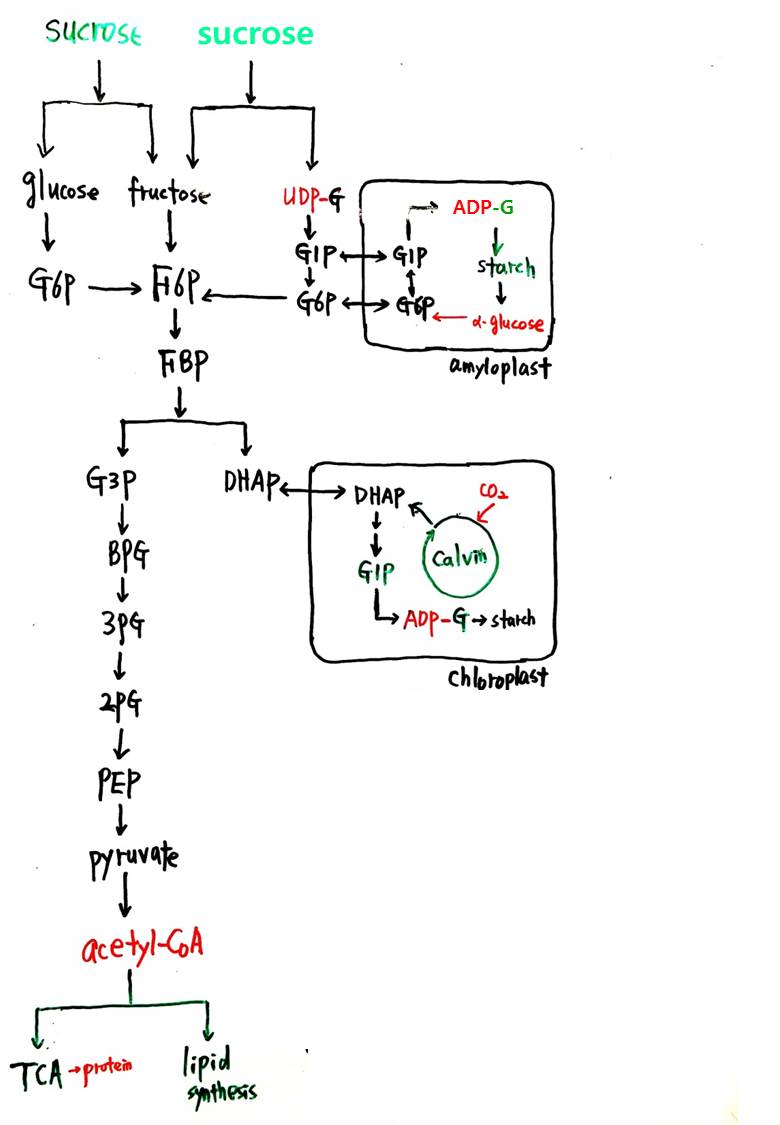 sucrose
sucrose
glucose
fructose
UDP-G
ADP-G
G1P
G1P
starch
G6P
F6P
G6P
G6P
α-glucose
FBP
amyloplast
G3P
DHAP
DHAP
CO2
BPG
G1P
Calvin
3PG
ADP-G
starch
chloroplast
2PG
PEP
pyruvate
acetyl-CoA
TCA
protein
lipid
synthesis